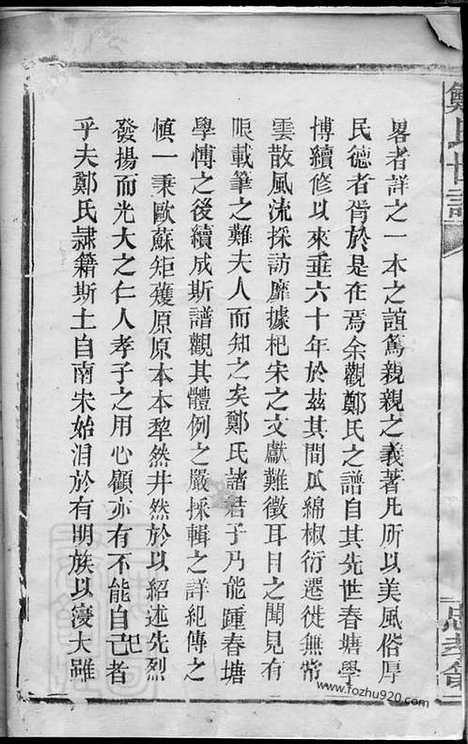 畧者詳之一本之誼篤親親之義著凡所以美風俗厚
民德者胥於是在焉余觀鄭氏之譜自其先世春塘學
博續修以來垂六十年於茲其間瓜綿椒衍遷徙無常
雲散風流採訪靡據杞宋之文獻難徵耳目之聞見有
限載筆之難夫人而知之矣鄭氏諸君子乃能踵春塘
學博之後續成斯譜觀其體例之嚴採輯之詳紀傳之
慎一秉歐蘇矩矱原原本本犂然井然於以紹述先烈
發揚而光大之仁人孝子之用心顧亦有不能自已者
乎夫鄭氏隸籍斯土自南宋始洎於有明族以寖大雖
鄭氏世譜
www.fozhu920.com